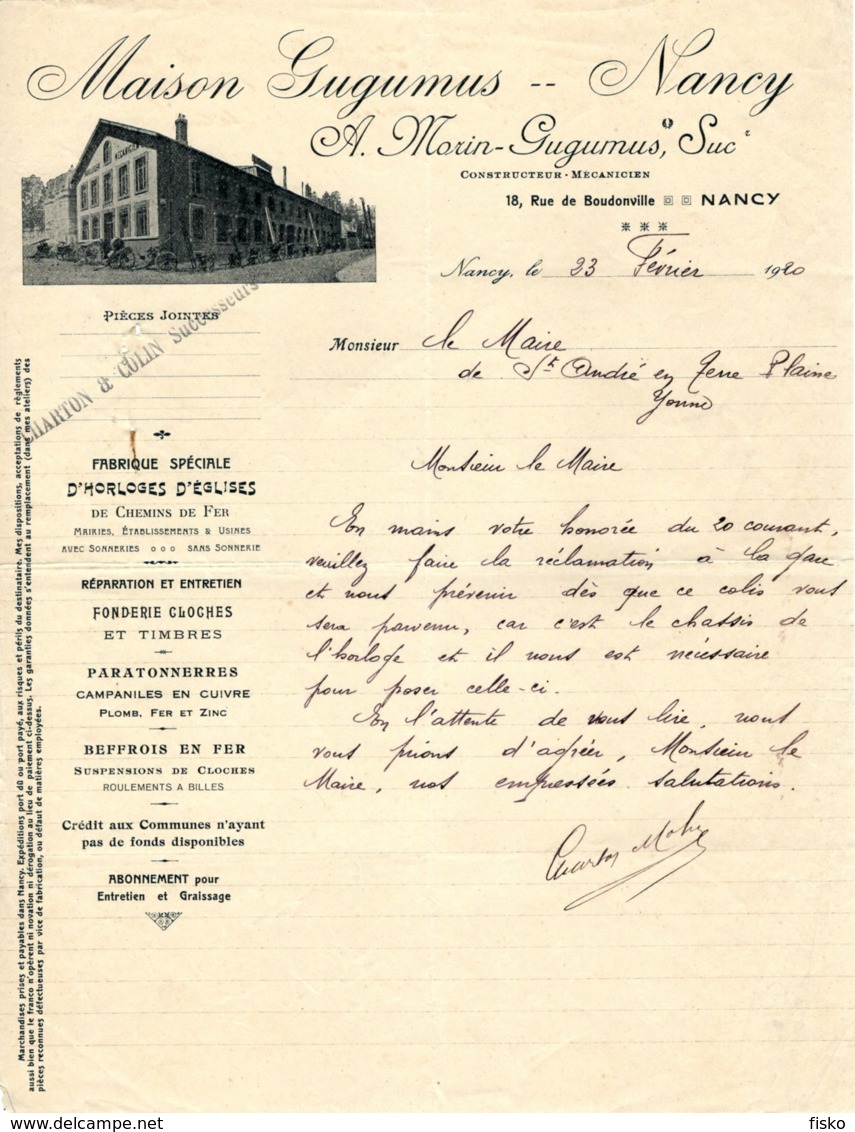 Maison Gugumus -- Nancy
A. Morin-Gugumus, Sucʳ
CONSTRUCTEUR-MÉCANICIEN
18, Rue de Boudonville NANCY
Nancy, le 23 Février 1920
PIÈCES JOINTES
HARTON & COLIN Successeurs
Monsieur le Maire
de St André en Terre Plaine
Yonne
Monsieur le Maire
En mains votre honorée du 20 courant,
veuillez faire la réclamation à la gare
et nous prévenir dès que ce colis vous
sera parvenu, car c'est le chassis de
l'horloge et il nous est nécessaire
pour poser celle-ci.
En l'attente de vous lire, nous
vous prions d'agréer, Monsieur le
Maire, nos empressées salutations.
FABRIQUE SPÉCIALE
D'HORLOGES D'ÉGLISES
DE CHEMINS DE FER
MAIRIES, ÉTABLISSEMENTS & USINES
AVEC SONNERIES ooo SANS SONNERIE
RÉPARATION ET ENTRETIEN
FONDERIE CLOCHES
ET TIMBRES
PARATONNERRES
CAMPANILES EN CUIVRE
PLOMB, FER ET ZINC
BEFFROIS EN FER
SUSPENSIONS DE CLOCHES
ROULEMENTS A BILLES
Crédit aux Communes n'ayant
pas de fonds disponibles
ABONNEMENT pour
Entretien et Graissage
Marchandises prises et payables dans Nancy. Expéditions port dû ou port payé, aux risques et périls du destinataire. Mes dispositions, acceptations de règlements
aussi bien que le franco n'opèrent ni novation ni dérogation au lieu de paiement ci-dessus. Les garanties données s'entendent au remplacement (dans mes ateliers) des
pièces reconnues défectueuses par vice de fabrication, ou défaut de matières employées.
fisko